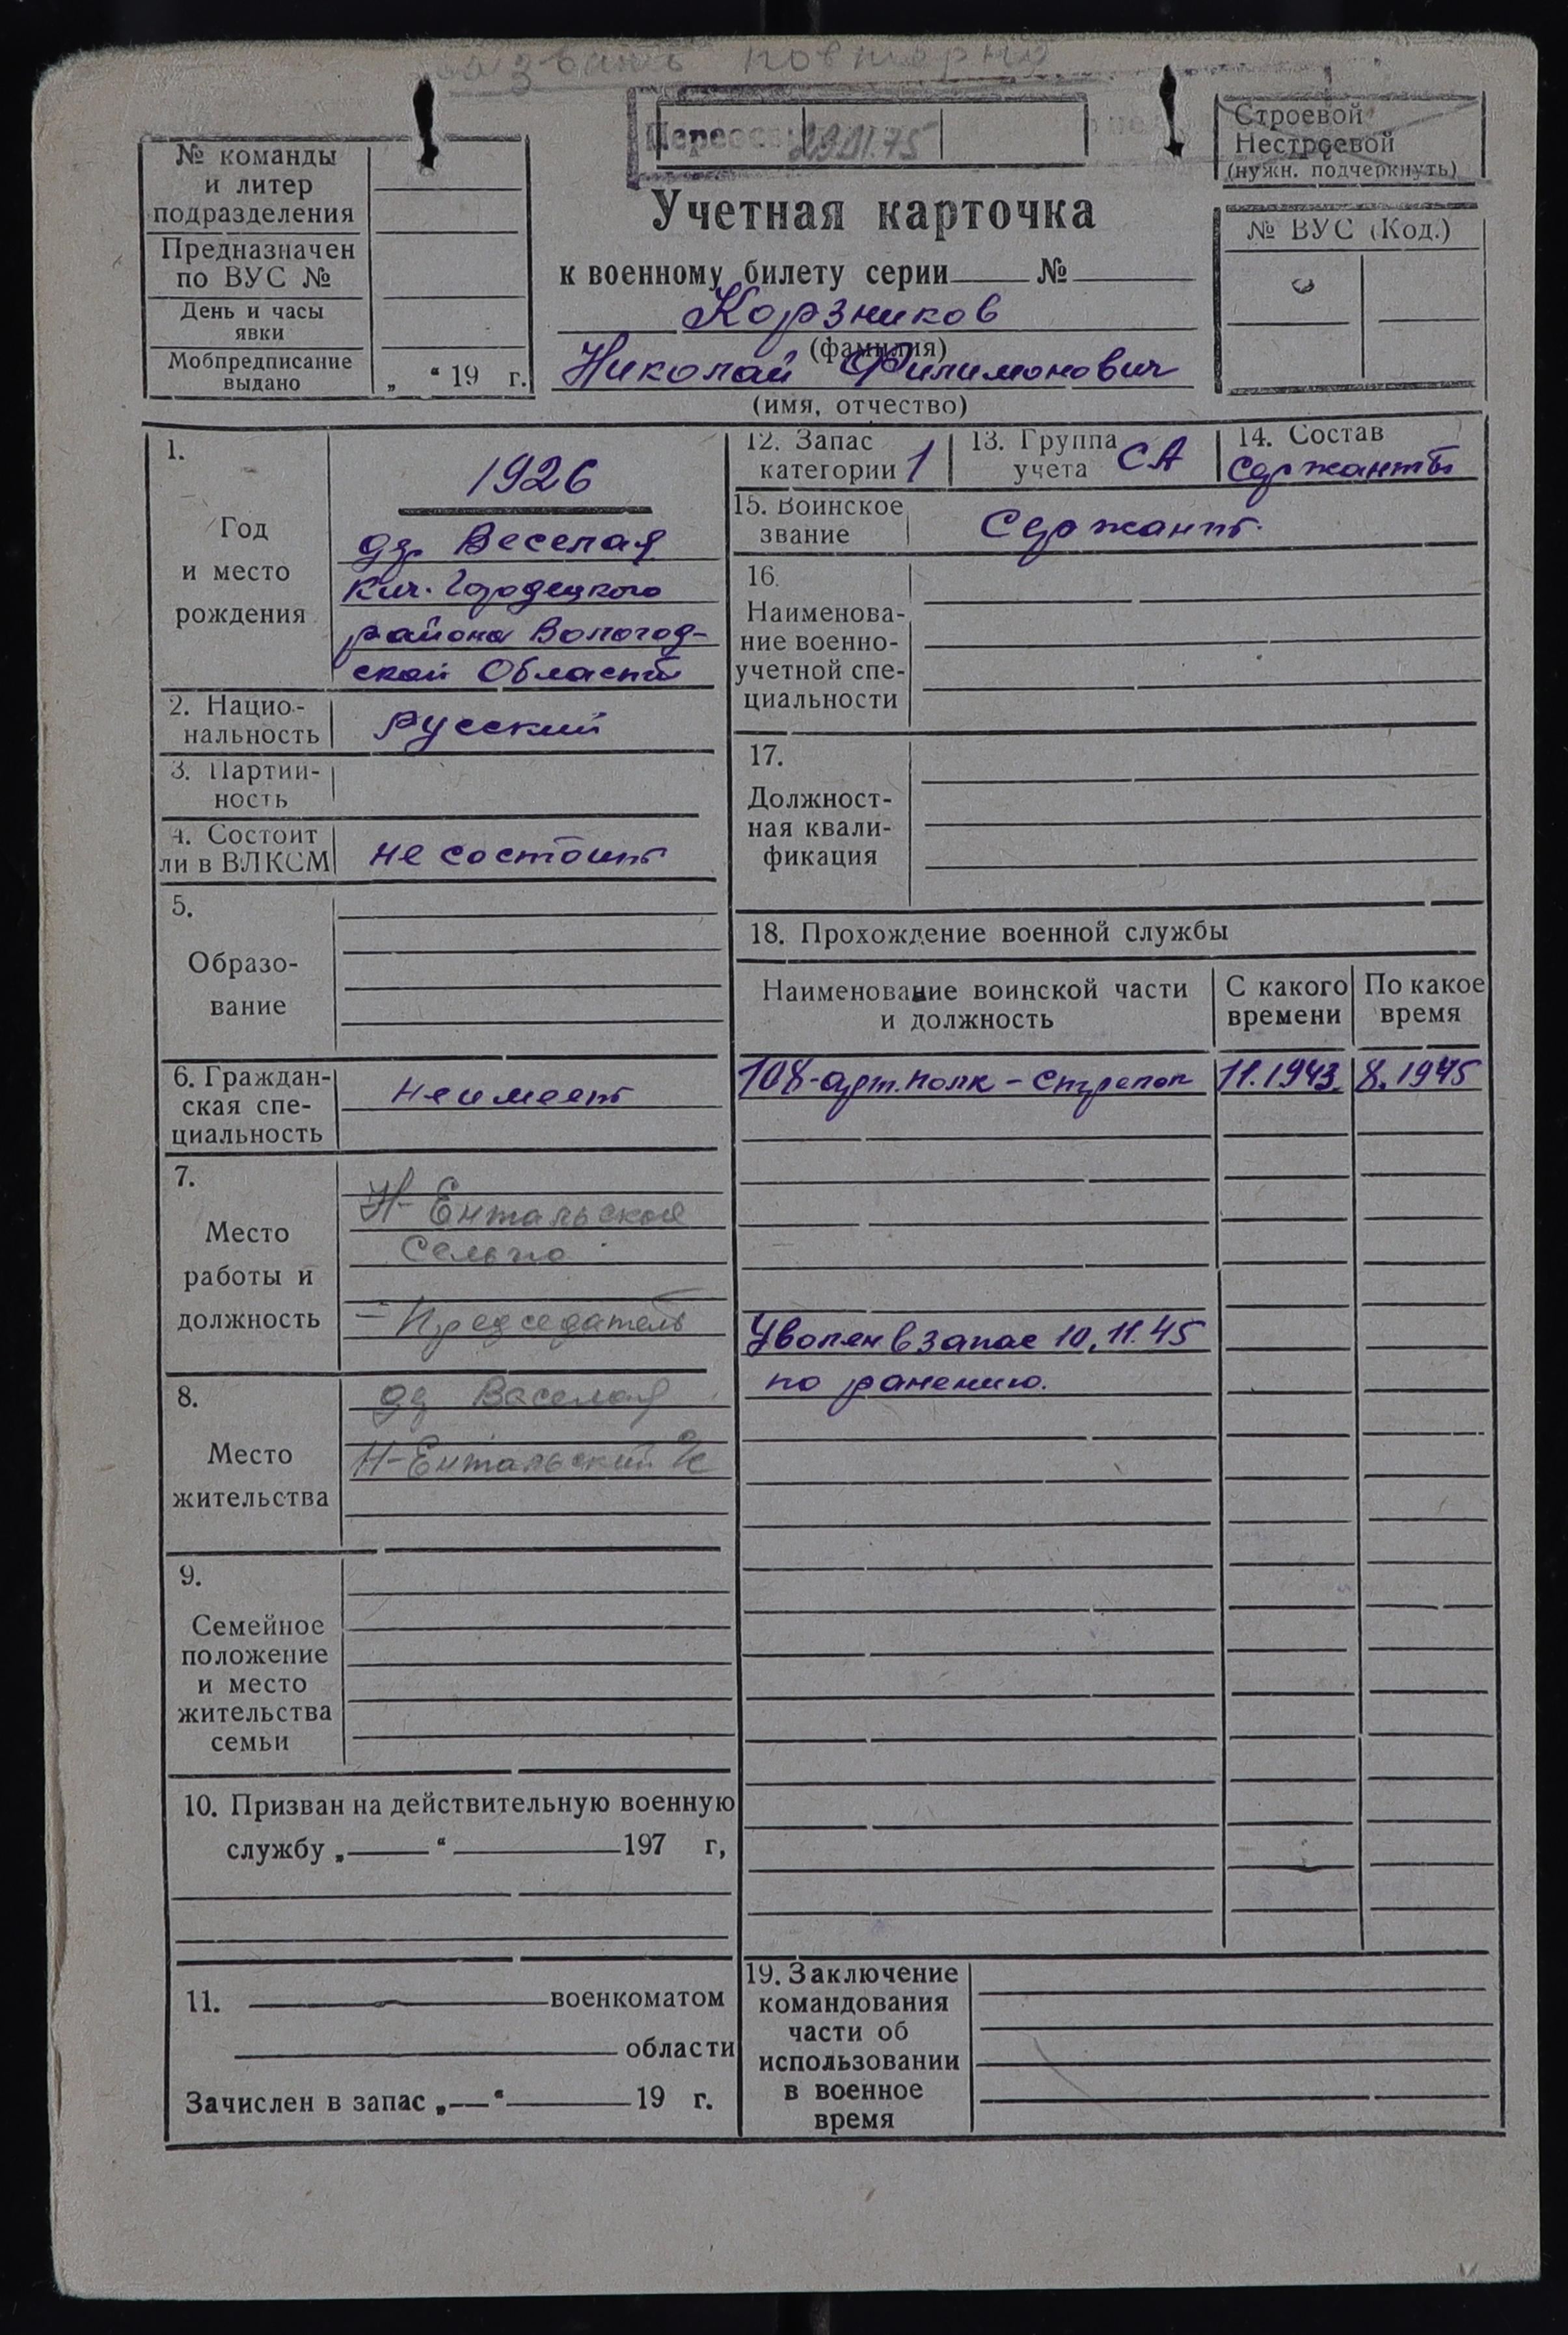 повторно
Переосв 29.01.75
Строевой
Нестроевой
(нужн. подчеркнуть)
№ команды
и литер
подразделения
Предназначен
по ВУС №
День и часы
явки
Мобпредписание
выдано
„ “ 19 г.
Учетная карточка
к военному билету серии №
Корзников
(фамилия)
Николай Филимонович
(имя, отчество)
№ ВУС (Код.)
1.
Год
и место
рождения
1926
дд. Веселая
Кич. Городецкого
района Вологод-
ской Области
2. Нацио-
нальность
русский
3. Партий-
ность
4. Состоит
ли в ВЛКСМ
не состоит
5.
Образо-
вание
6. Граждан-
ская спе-
циальность
не имеет
7.
Место
работы и
должность
Н-Ентальское
Сельпо
- Председатель
8.
Место
жительства
дд Веселая
Н-Ентальский с/с
9.
Семейное
положение
и место
жительства
семьи
10. Призван на действительную военную
службу „ “ 197 г,
11. военкоматом
области
Зачислен в запас „ “ 19 г.
12. Запас
категории 1
13. Группа
учета СА
14. Состав
сержанты
15. Воинское
звание
Сержант.
16.
Наименова-
ние военно-
учетной спе-
циальности
17.
Должност-
ная квали-
фикация
18. Прохождение военной службы
Наименование воинской части
и должность
С какого
времени
По какое
время
108-арт. полк - стрелок 11.1943. 8.1945
Уволен в запас 10.11.45
по ранению.
19. Заключение
командования
части об
использовании
в военное
время